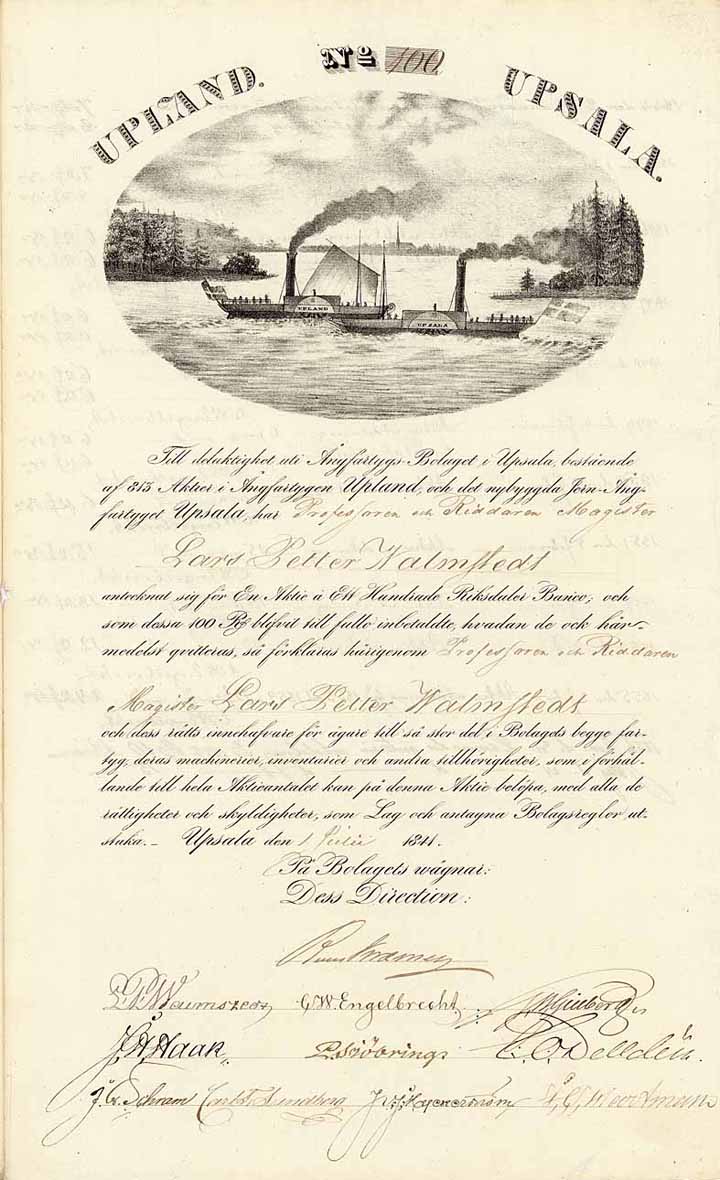 Nº 400
UPLAND. UPSALA.
UPLAND
UPSALA
Till delaktighet uti Ångfartygs-Bolaget i Upsala, bestående
af 315 Aktier i Ångfartygen Upland, och det nybyggda Jern-Ång-
fartyget Upsala, har Professoren och Riddaren Magister
Lars Petter Walmstedt
antecknat sig för En Aktie à Ett Hundrade Riksdaler Banco; och
som dessa 100 Rdr blifvit till fullo inbetaldte, hvadan de ock här-
medelst qvitteras, så förklaras härigenom Professoren och Riddaren
Magister Lars Petter Walmstedt
och dess rätts innehafvare för ägare till så stor del i Bolagets begge far-
tyg, deras machinerier, inventarier och andra tillhörigheter, som i förhål-
lande till hela Aktieantalet kan på denna Aktie belöpa, med alla de
rättigheter och skyldigheter, som Lag och antagna Bolagsreglor ut-
staka. – Upsala den 1 Julii 1841.
På Bolagets wägnar:
Dess Direction:
L.P. Walmstedt G.W. Engelbrecht
J.H. Haak. P. Sjöbring
J. G. Schram Carl F. Lundberg